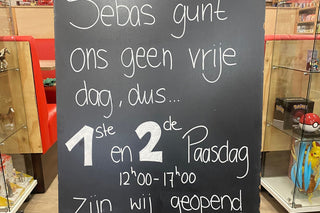 Sebas gunt
ons geen vrije
dag, dus...
1ste en 2de Paasdag
12h00-17h00
zijn wij geopend